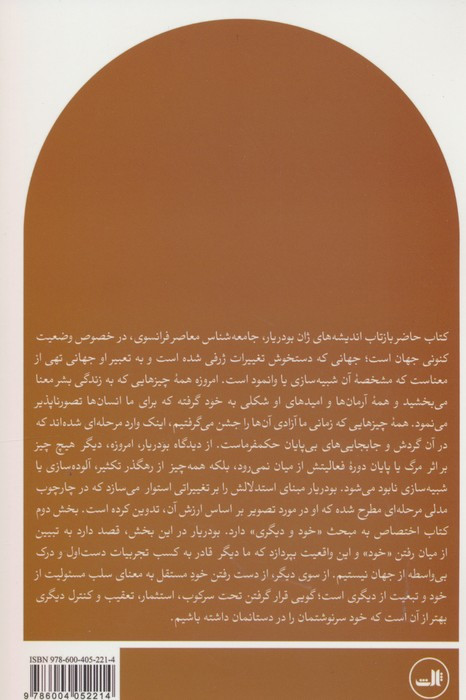 کتاب حاضر بازتاب اندیشه‌های ژان بودریار، جامعه‌شناس معاصر فرانسوی، در خصوص وضعیت
کنونی جهان است؛ جهانی که دستخوش تغییرات ژرفی شده است و به تعبیر او جهانی تهی از
معناست که مشخصهٔ آن شبیه‌سازی یا وانمود است. امروزه همهٔ چیزهایی که به زندگی بشر معنا
می‌بخشید و همهٔ آرمان‌ها و امیدهای او شکلی به خود گرفته که برای ما انسان‌ها تصورناپذیر
می‌نمود. همهٔ چیزهایی که زمانی ما آزادی آن‌ها را جشن می‌گرفتیم، اینک وارد مرحله‌ای شده‌اند که
در آن گردش و جابجایی‌های بی‌پایان حکمفرماست. از دیدگاه بودریار، امروزه، دیگر هیچ چیز
بر اثر مرگ یا پایان دورهٔ فعالیتش از میان نمی‌رود، بلکه همه‌چیز از رهگذر تکثیر، آلوده‌سازی یا
شبیه‌سازی نابود می‌شود. بودریار مبنای استدلالش را بر تغییراتی استوار می‌سازد که در چارچوب
مدلی مرحله‌ای مطرح شده که او در مورد تصویر بر اساس ارزش آن، تدوین کرده است. بخش دوم
کتاب اختصاص به مبحث «خود و دیگری» دارد. بودریار در این بخش، قصد دارد به تبیین
از میان رفتن «خود» و این واقعیت بپردازد که ما دیگر قادر به کسب تجربیات دست‌اول و درک
بی‌واسطه از جهان نیستیم. از سوی دیگر، از دست رفتن خودِ مستقل به معنای سلب مسئولیت از
خود و تبعیت از دیگری است؛ گویی قرار گرفتن تحت سرکوب، استثمار، تعقیب و کنترل دیگری
بهتر از آن است که خود سرنوشتمان را در دستانمان داشته باشیم.
ISBN 978-600-405-221-4
9 786004 052214
ثالث